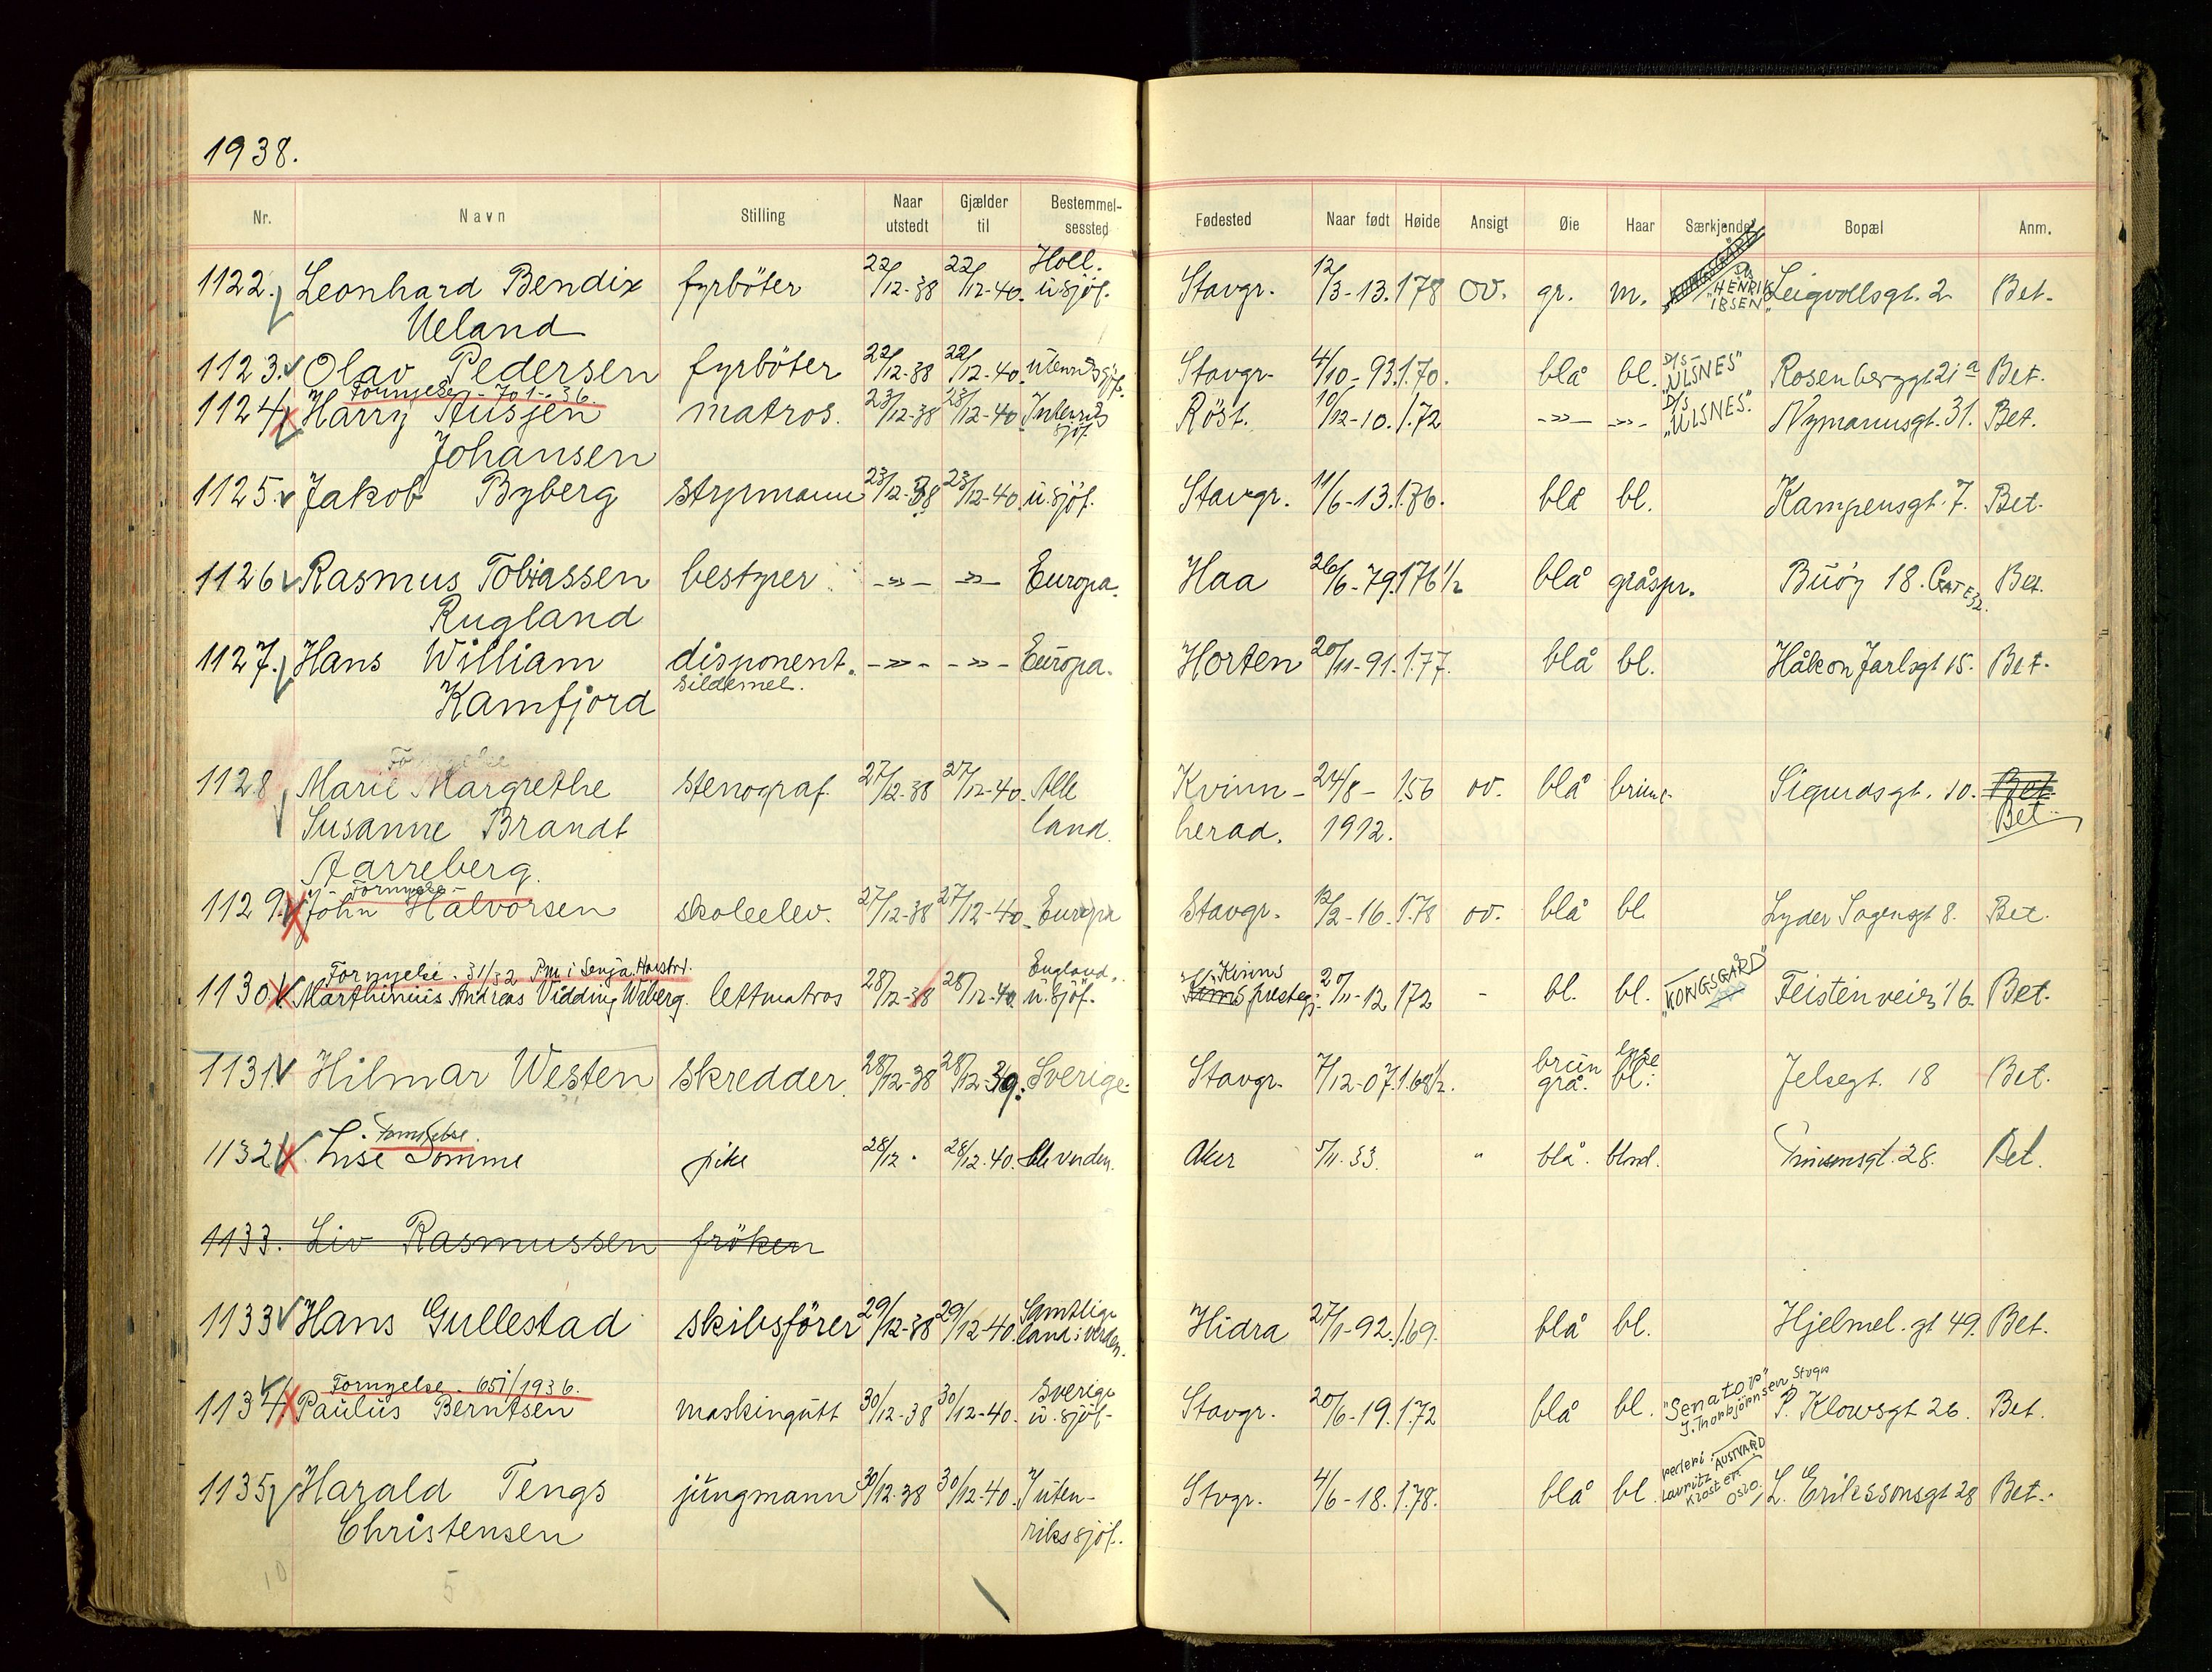 1938.
Nr. Navn Stilling Naar utstedt Gjælder til Bestemmelsessted Fødested Naar født Høide Ansigt Øie Haar Særkjende Bopæl Anm.
1122. Leonhard Bendix fyrböter 22/12-38 22/12-40. Holl. u.sjöf. Stavgr. 12/3-13. 178 ov. gr. m. D/S "HENRIK IBSEN" Leigvollsgt. 2 Bet.
Ueland
1123. Olav Pedersen fyrböter 22/12-38 22/12-40. utenriksjöf. Stavgr. 4/10-93. 1.70. blå bl. D/S "ULSNES" Rosenberggt 21a Bet.
Fornyelse - 701-36.
1124 Harry Ausjen matros. 23/12-38 23/12-40 Inlenriks sjöf. Röst. 10/12-10. 1.72 -»- -»- D/S "ULSNES". Nymannsgt. 31. Bet.
Johansen
1125. Jakob Byberg styrmann 23/12-38 23/12-40. u.sjöf. Stavgr. 11/6-13. 1.76. blå bl. Kampensgt. 7. Bet.
1126 Rasmus Tobiassen bestyrer -»- -»- Europa. Haa 26/6-79. 176 1/2 blå gråspr. Buöy 18. GATE 32. Bet.
Rugland
1127. Hans William disponent. -»- -»- Europa. Horten 20/11-91. 1.77. blå bl. Håkon Jarlsgt 15. Bet.
sildemel.
Kamfjord
Fornyelse
1128 Marie Margrethe stenograf. 27/12-38 27/12-40. Alle Kvinn- 24/8- 156 ov. blå brune. Sigurdsgt. 10. Bet.
Susanne Brandt land. herad. 1912. Bet.
Aarreberg.
Fornyelse-
1129. John Halvorsen skoleelev. 27/12-38 27/12-40. Europa Stavgr. 12/2-16. 1.78 ov. blå bl. Lyder Sagensgt 8. Bet.
Fornyelse. 31/32 Pm i Senja. Harstad. England. Kinns
1130. Marthinius Andreas Vidding Wiberg. lettmatros 28/12-38 28/12-40. u.sjöf. Kinns prestegj. 20/11-12 172 - bl. bl. "KONGSGÅRD" Feistenveien 16. Bet.
1131. Hilmar Westen skredder. 28/12-38 28/12-39. Sverige. Stavgr. 7/12-07. 1.68 1/2. brun grå. lyse bl. Jelsegt. 18 Bet.
Fornyelse.
1132 Lise Somme pike 28/12. 28/12.40. Alle verden. Aker 5/11.33. " blå. blond. 28. Bet.
1133. Liv Rasmussen fröken
1133 Hans Gullestad skibsförer 29/12-38 29/12-40. Samtlige land i verden. Hidra 27/1-92. 1.69. blå bl. Hjelmel.gt 49. Bet.
Fornyelse. 651/1936.
1134 Paulus Berntsen maskingutt 30/12-38 30/12-40. Sverige u.sjöf. Stavgr. 20/6-19. 1.72 blå bl. "Senator" J. Thorbjörnsen Stvgr P. Klowsgt 26. Bet.
1135 Harald Tengs jungmann 30/12-38 30/12-40. I uten- Stvgr. 4/6-18. 1.78. blå bl. rederi Lauritz Kloster AUSTVARD Oslo. L. Erikssonsgt 28 Bet.
Christensen rikssjöf.
10 5